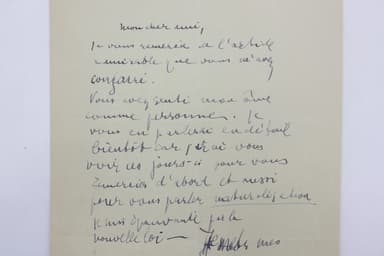 Mon cher ami,
Je vous remercie de l'article
admirable que vous m'avez
consacré.
Vous avez senti mon âme
comme personne. Je
vous en parlerai en détail
bientôt car j'irai vous
voir ces jours-ci pour vous
remercier d'abord et aussi
pour vous parler naturalisation
Je suis épouvanté par la
nouvelle loi —